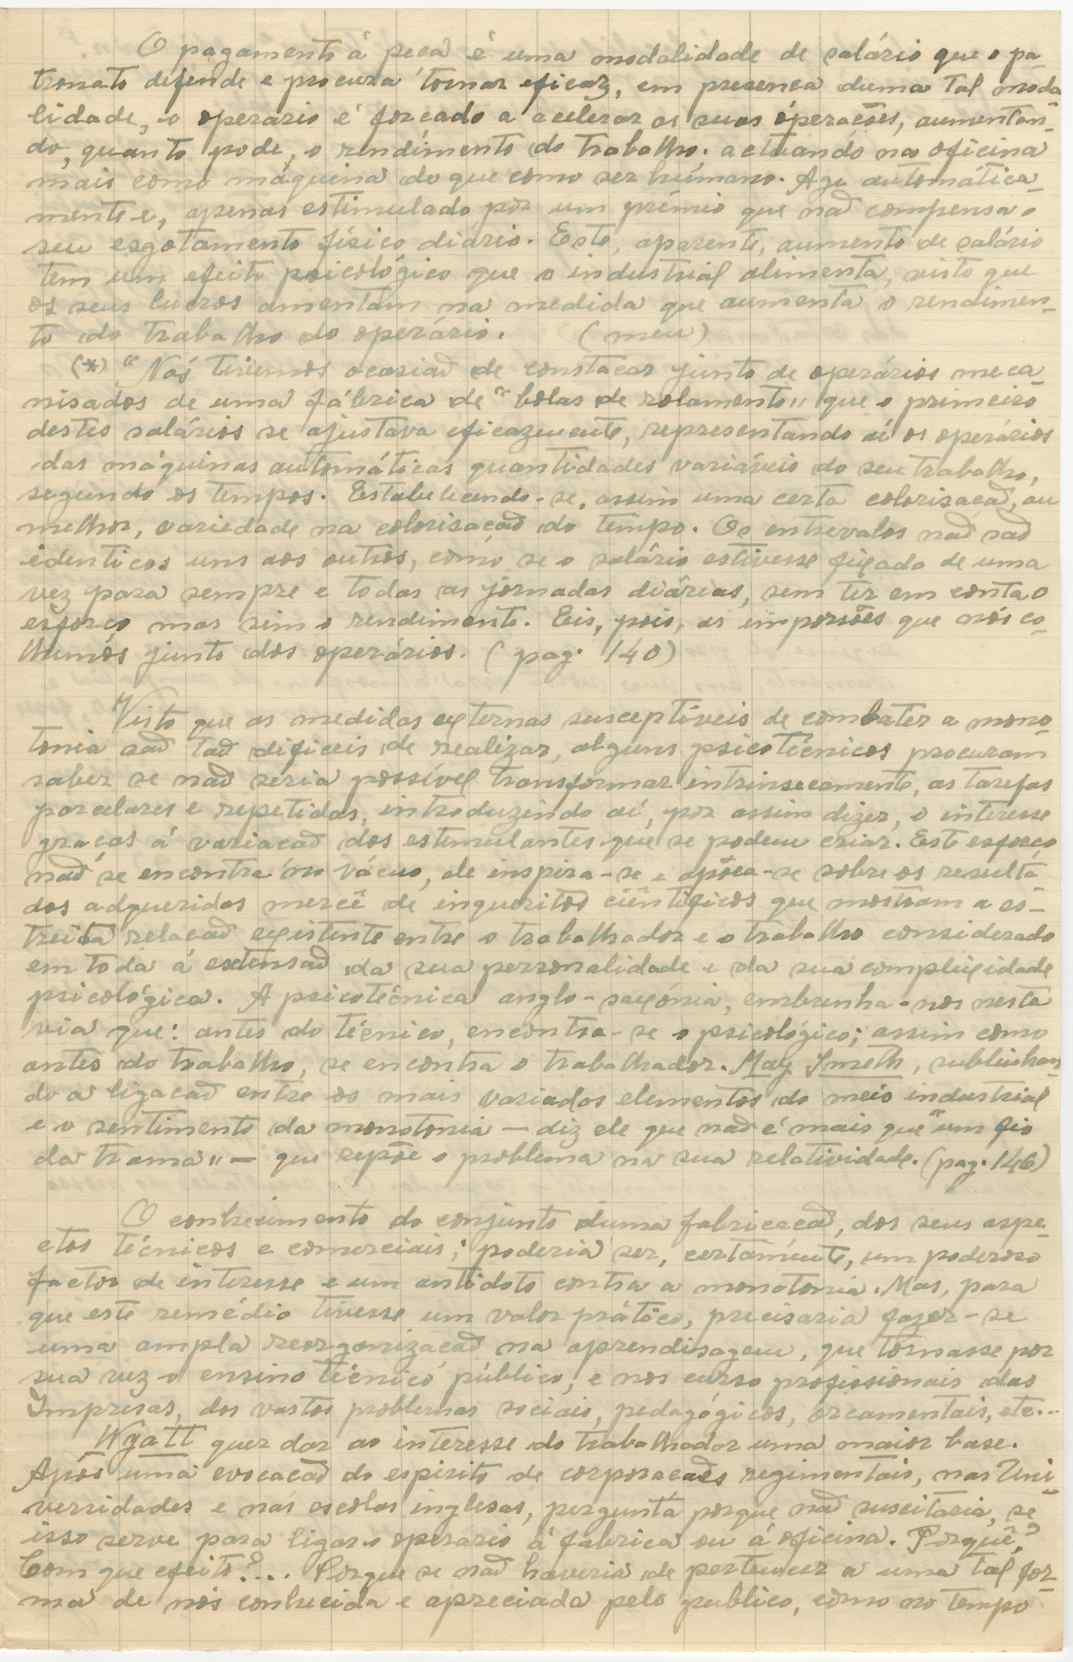 O pagamento á peça é uma modalidade de salário que o pa-
tronato difende e procura tornar eficaz, em presença duma tal moda-
lidade, o operário é forçado a acelerar as suas óperações, aumentan-
do, quanto pode, o rendimento do trabalho; actuando na oficina
mais como máquina do que como ser húmano. Age automática-
mente e, apenas estimulado por um prémio que não compensa o
seu esgotamento físico diário. Este, aparente, aumento de salário
tem um efeito psicológico que o industrial alimenta, visto que
os seus lucros amentam na medida que aumenta o rendimen-
to do trabalho do operário. (meu)
(*) "Nós tivemos ocasião de constatar junto de operários meca-
nisados de uma fábrica de "bolas de rolamento" que o primeiro
destes salários se ajustava eficazmente, representando aí os operários
das máquinas automáticas quantidades variáveis do seu trabalho,
segundo os tempos. Estabelecendo-se, assim uma certa colorisação, ou
melhor, variedade na colorisação do tempo. Os entrevalos não são
identicos uns aos outros, como se o salário estivesse fixado de uma
vez para sempre e todas as jornadas diárias, sem ter em conta o
esforço mas sim o rendimento. Eis, pois, as impressões que nós co-
lhemos junto dos operários. (pag. 140)
"Visto que as medidas externas susceptíveis de combater a mono-
tonia são tão dificeis de realizar, alguns psicotécnicos procuram
saber se não seria possível transformar intrinsecamente, as tarefas
parcelares e repetidas, introduzindo aí, por assim dizer, o interesse
graças á variação dos estimulantes que se podem criar. Este esforço
não se encontra no vácuo, ele inspira-se e apóea-se sobre os resulta-
dos adqueridos mercê de inqueritos ciêntificos que mostram a es-
treita relação existente entre o trabalhador e o trabalho considerado
em toda á extensão da sua personalidade e da sua complexidade
psicológica. A psicotécnica anglo-saxónia, embrenha-nos nesta
via que: antes do técnico, encontra-se o psicológico; assim como
antes do trabalho, se encontra o trabalhador. May Smeth, sublinhan-
do a ligação entre os mais variados elementos do meio industrial
e o sentimento da monotonia — diz ele que não é mais que "um fio
da trama" — que repõe o problema na sua relatividade. (pag. 146)
O conhecimento do conjunto duma fabricação, dos seus aspe-
ctos técnicos e comerciais; poderia ser, certamente, um poderoso
factor de interesse e um antidoto contra a monotonia. Mas, para
que este remédio tivesse um valor prático, precisaria fazer-se
uma ampla reorganização na aprendisagem, que tornasse por
sua vez o ensino técnico público, e nos curso profissionais das
Impresas, dos vastos problemas sociais, pedagógicos, orçamentais, etc...
Wyatt quer dar ao interesse do trabalhador uma maior base.
Após uma evocação do espirito de corporações regimentais, nas Uni-
versidades e nas escolas inglesas, pergunta porque não suscitaria, se
isso serve para ligar o operario á fabrica ou á oficina. Porquê?
Com que efeito?... Porque se não haveria de pertencer a uma tal for-
ma de nós conhecida e apreciada pelo publico, como no tempo